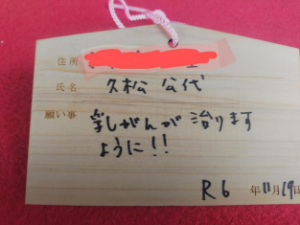 住所
氏名 久松 公代
願い事 乳しがんが治ります
ように!!
R6 年11月19日